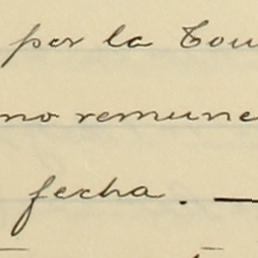 por la Cou
no remune
fecha. —